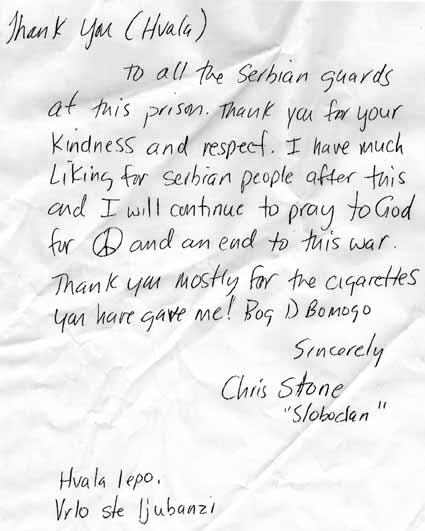 Thank you (Hvala)
To all the Serbian guards
at this prison. Thank you for your
kindness and respect. I have much
Liking for Serbian people after this
and I will continue to pray to God
for ☮ and an end to this war.
Thank you mostly for the cigarettes
you have gave me! Bog D Bomogo
Sincerely
Chris Stone
"Slobodan"
Hvala lepo.
Vrlo ste ljubanzi